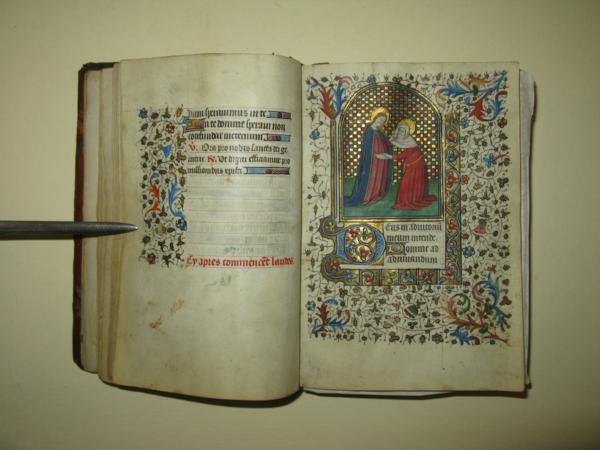 num speravimus in te
In te domine speravi non
confundar in eternum
V. Ora pro nobis sancta dei ge
nitrix R. Ut digni efficiamur pro
missionibus xpisti
Cy apres commencent laudes
Deus in adiutorium
meum intende
Domine ad
adiuvandum